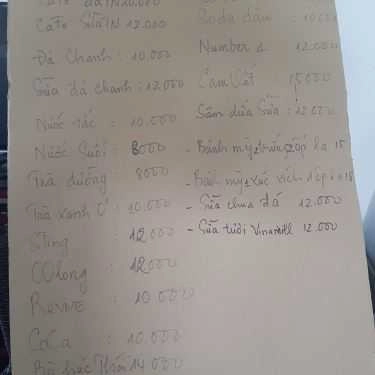 CaFe đá N 10.000
CaFe Sữa N 12.000
Đá Chanh : 10.000
Sữa đá chanh : 12.000
Nước tắc : 10.000
Nước Suối : 8000
Trà đường : 8000
Trà xanh O° : 10.000
Sting : 12000
Olong : 12000
Revive : 10 000
CoCa : 10.000
14 000
Soda dâu : 10
Number 1 : 12.000
Cam Vắt : 15000
Sâm dứa Sữa : 12.000
- Bánh mỳ 2 trứng ốp la 15
- Bánh mỳ xúc xích
- Sữa chua đá 12.000
- Sữa tươi Vinamilk 12.000